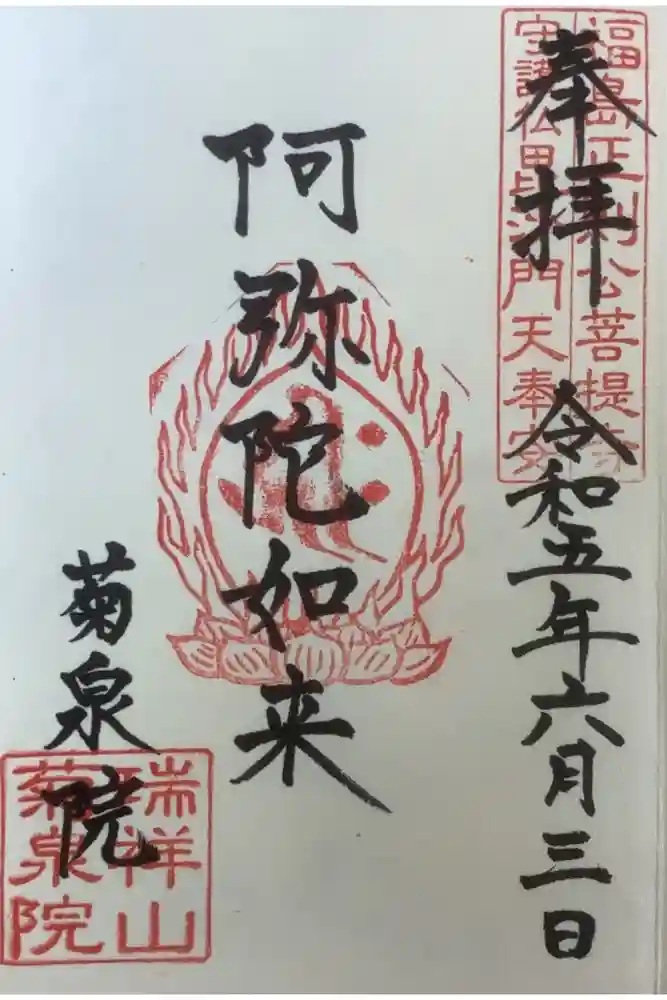 奉拝
令和五年六月三日
福島正則公菩提寺
守護仏毘沙門天奉安
阿弥陀如来
菊泉院
瑞祥山
菊泉院